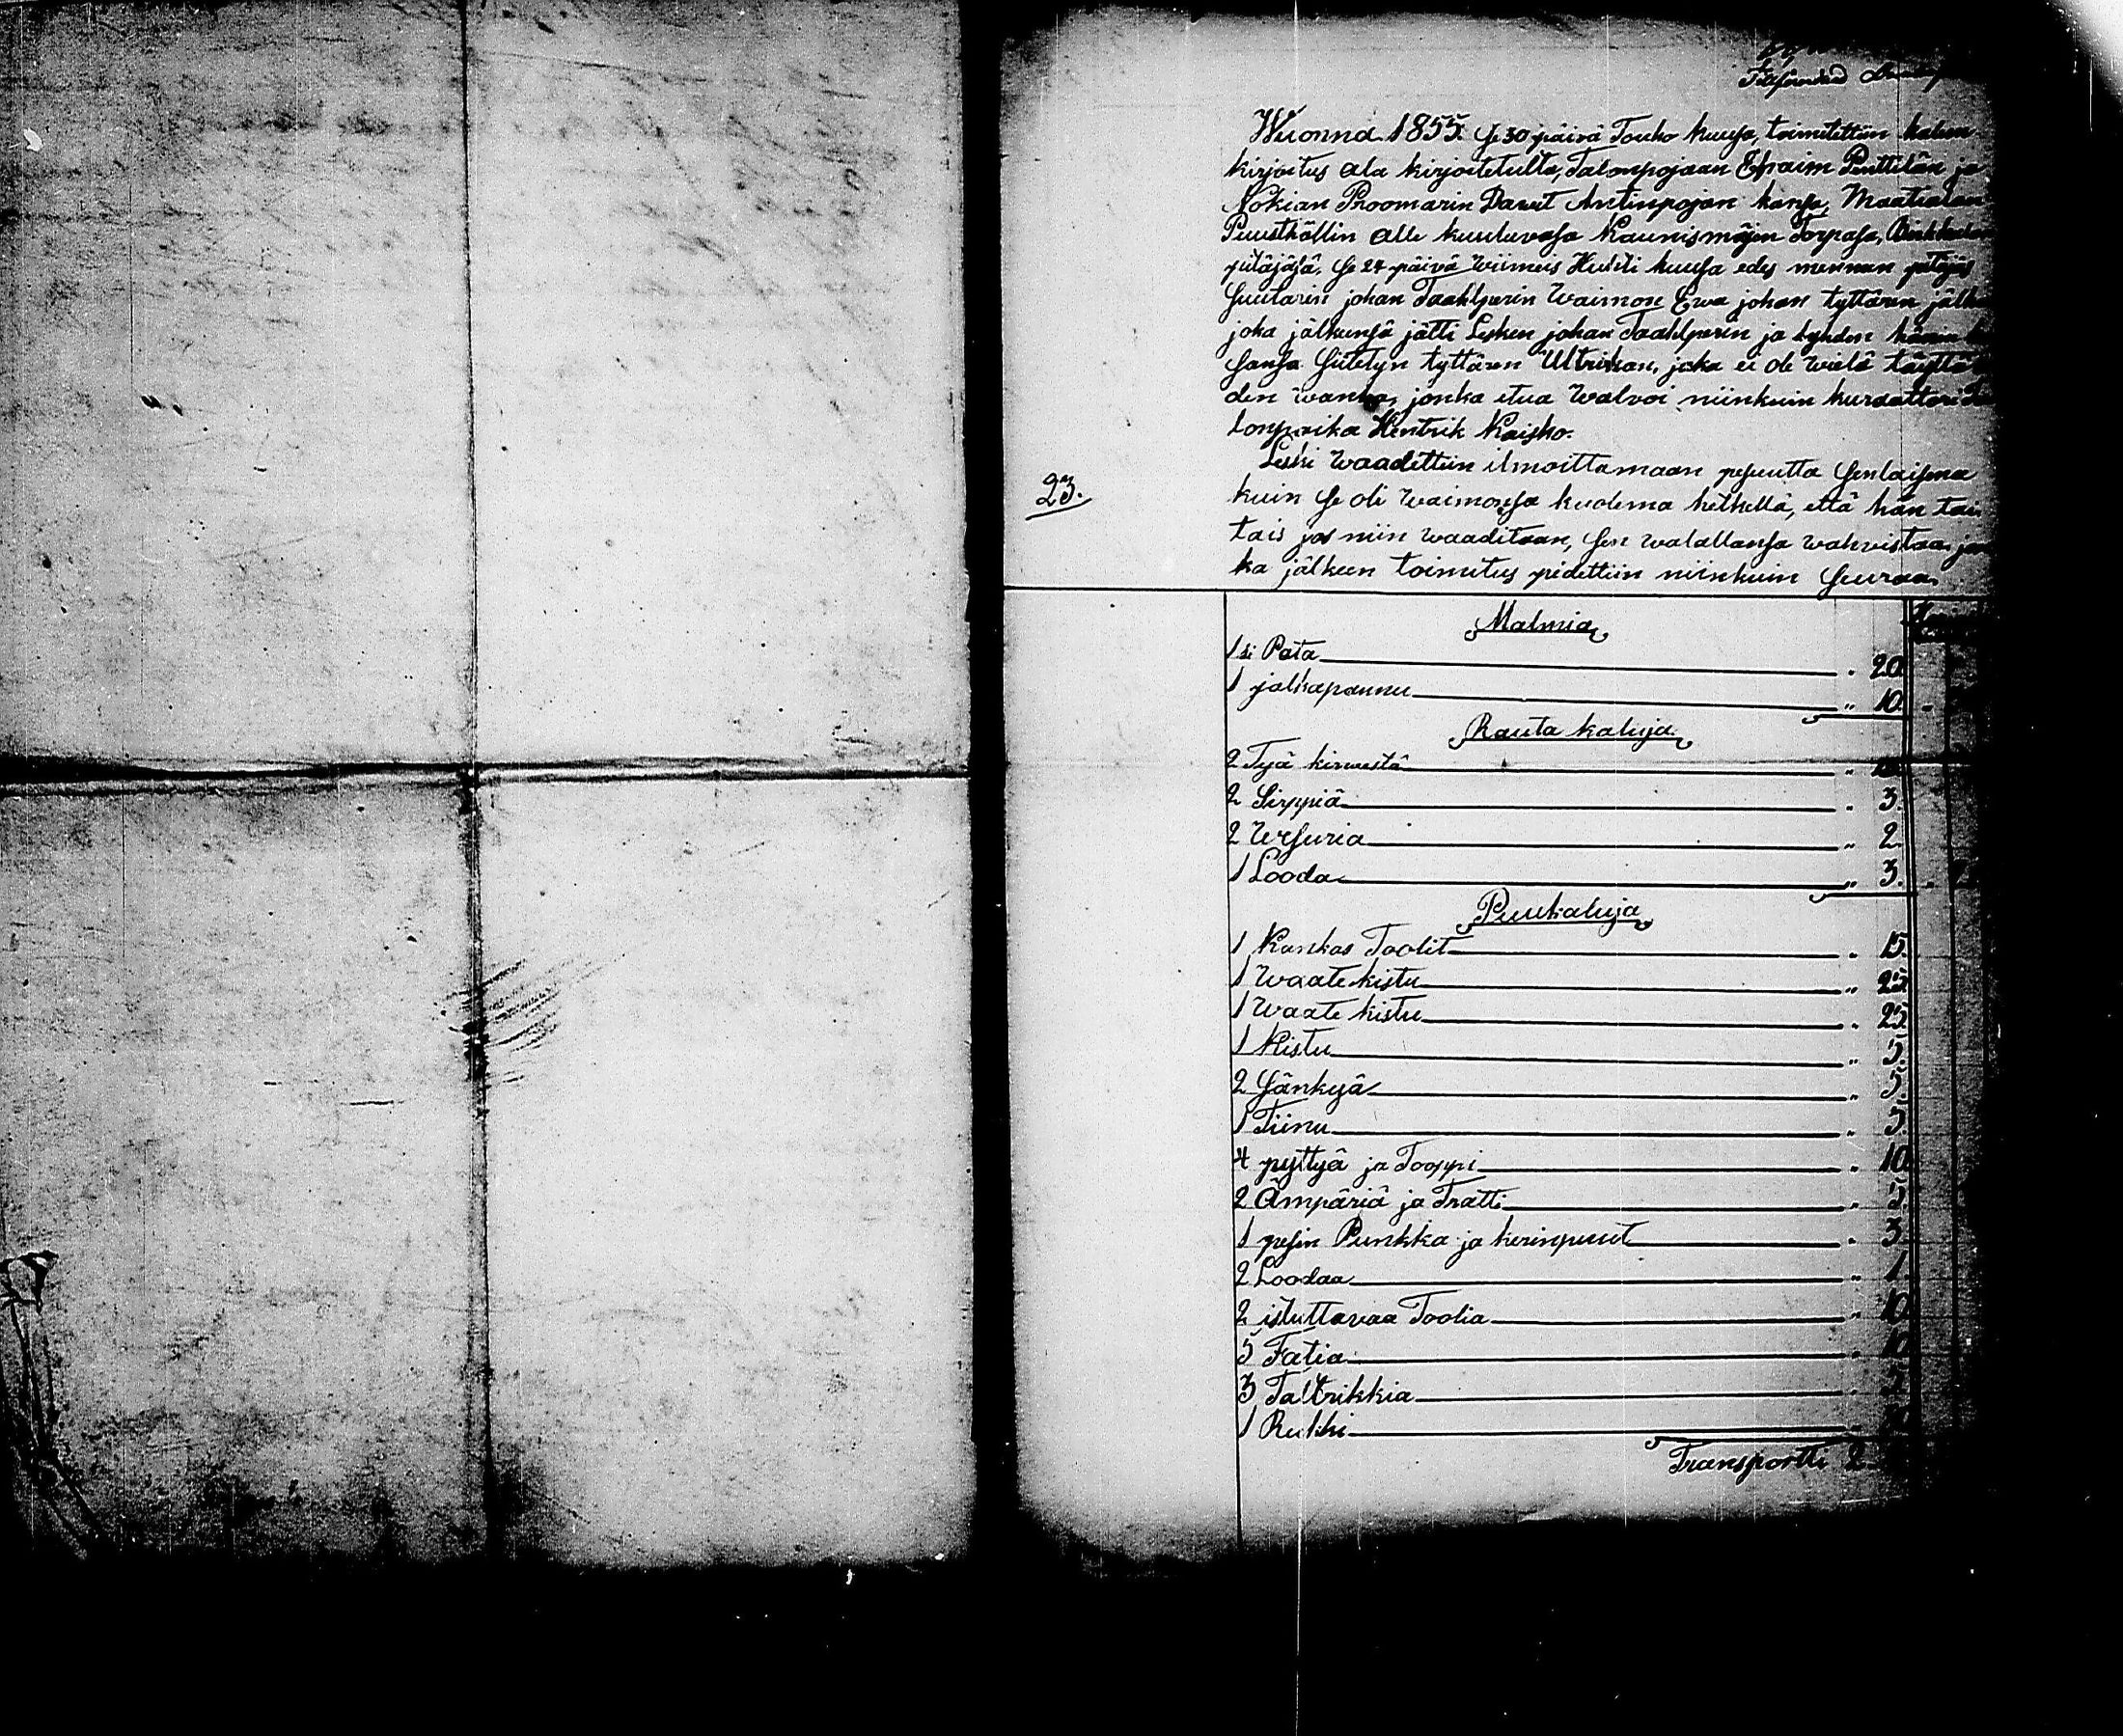 Wuonna 1855. Se 30 päivä Touko kuusa, toimitettiin kalun
kirjoitus ala kirjoitetulta, Talonpojaan Efraim Penttilän ja
Nokian Proomarin Dawet Antinpojan kansa, Maatialan
Puustköllin alle kuuluvasa Kaunismäjen Torpasa,
pitäjäsä, Se 27 päivä Wiimeis Huhti kuusa edes mennen pitäjäs
Suutarin johan Taahlperin Waimon Ewa johan tyttären
joka jälkensä jätti Lesken johan Taahlperin ja
Sansa Siitetyn tyttären Ultrikan, joka ei ole Wielä
den wanha, jonka etua Walvoi niinkuin
lonpoika Hentrik Kaisko.
Leski Waadittiin ilmoittamaan pesuutta Senlaisena
23.
kuin Se oli Waimonsa kuolema hetkellä, että hän tai
tais jos niin waaditaan, Sen walallansa wahvistaa, jon
ka jälkeen toimitus pidettiin niinkuin Seuraa.
Malmia
1 si Pata " 20.
1 jalkapannu " 10.
Rauta kaluja
2 Tyä kirwestä "
2 Sirppiä " 3.
2 Wesuria " 2.
1 Looda " 3.
Puukaluja
1 Kankas Toolit " 15.
1 Waate kistu " 25
1 Waate kistu " 25.
1 Kistu " 5.
2 Sänkyä " 5.
1 Tiinu " 5.
4 pyttyä ja Tooppi " 10
2 Ämpäriä ja Tratti " 5.
1 pesin Punkka ja kerinpuut " 3.
2 Loodaa " 1
2 istuttavaa Toolia " 10
5 Fatia " 10
3 Taltrikkia "
1 Rukki "
Transportti 2